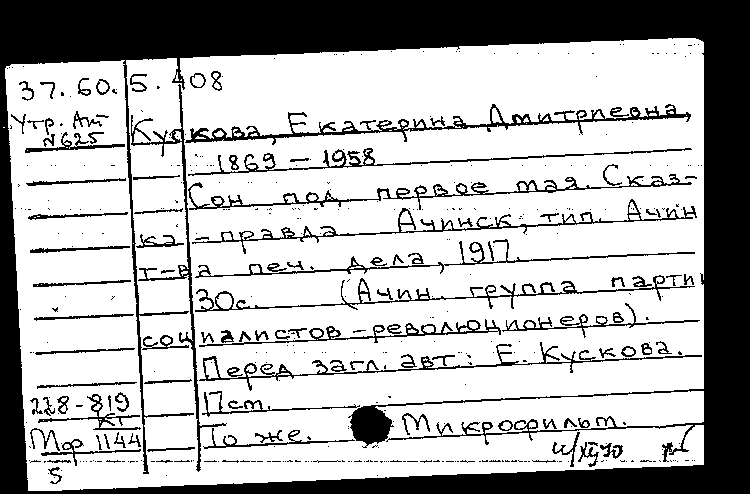 37.60.5.408
Утр. Акт
N625
Кускова, Екатерина Дмитриевна,
1869 – 1958
Сон под первое мая. Сказ-
ка - правда. Ачинск, тип. Ачин
т-ва печ. дела, 1917.
30с. (Ачин. группа партии
социалистов-революционеров).
Перед загл. авт.: Е. Кускова.
228-819
17см.
Мф 1144
То же. Микрофильм.
5